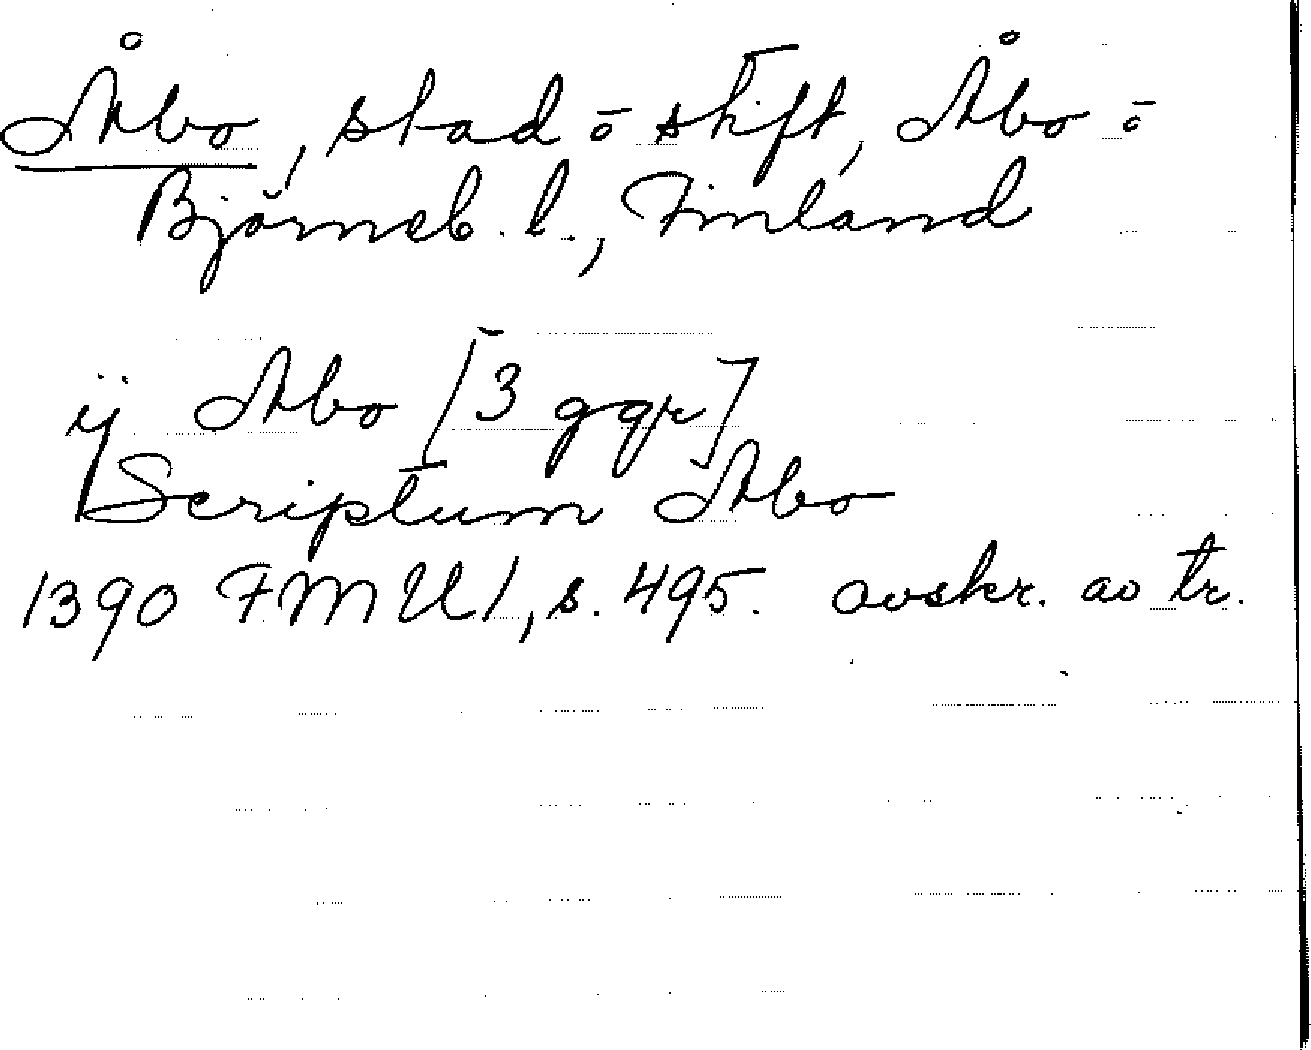 Åbo, stad o stift, Åbo o
Björneb. l., Finland
ÿ Abo [3 ggr]
Scriptum Abo
1390 FMU 1, s. 495. avskr. av tr.